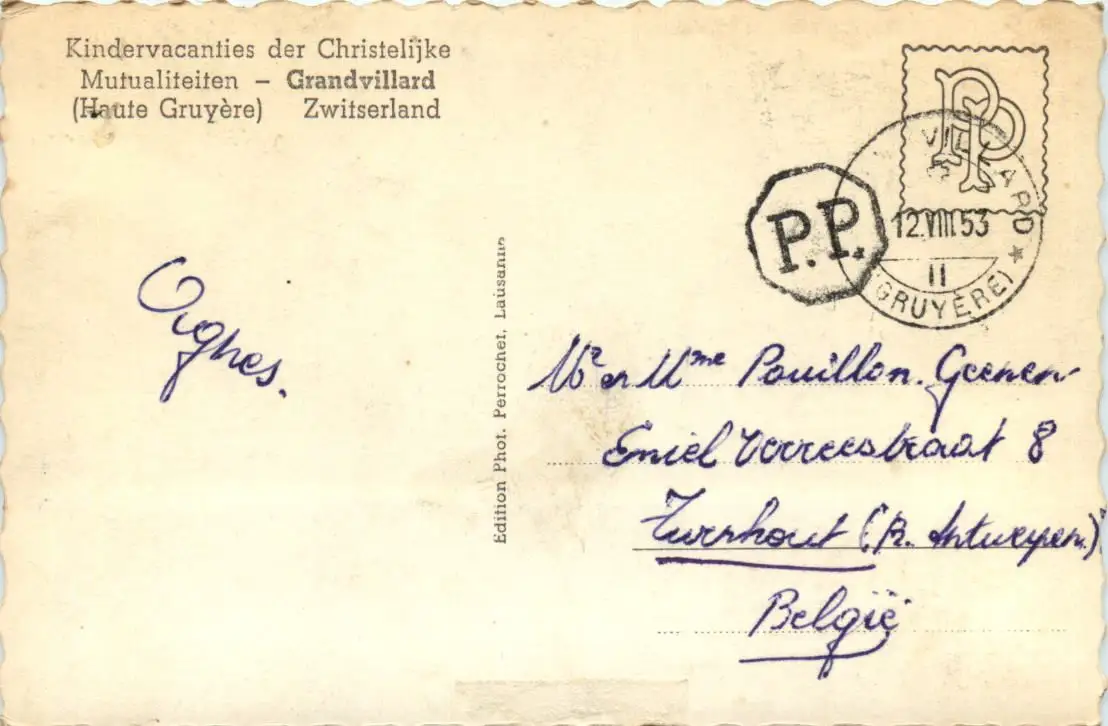 Kindervacanties der Christelijke
Mutualiteiten – Grandvillard
(Haute Gruyère) Zwitserland
PP
P.P.
VILLARD
12.VIII.53
11
(GRUYÈRE)
Edition Phot. Perrochet, Lausanne
Mr en Mme Pouillon-Geenen
Emiel Verreesstraat 8
Turnhout (P. Antwerpen)
België